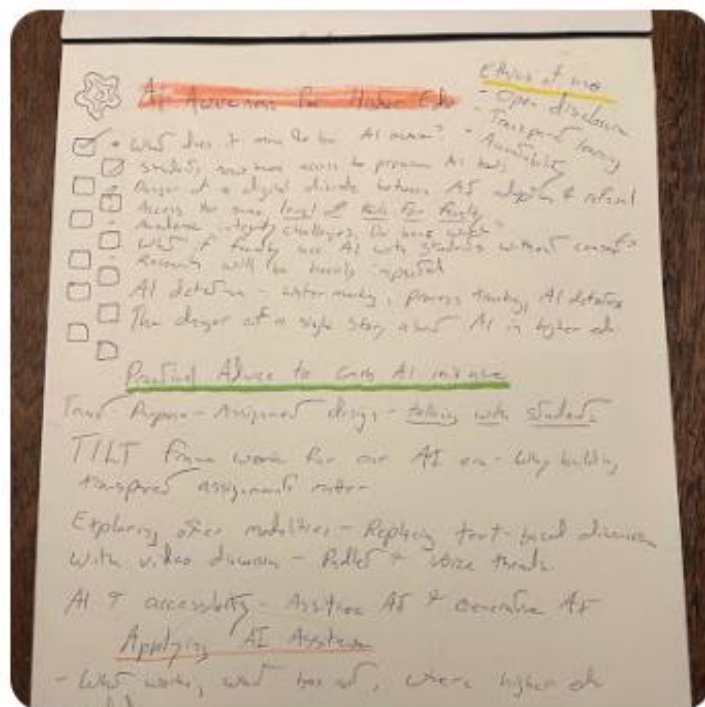 AI Awareness For Higher Edu
Ethics of use
- Open disclosure
- Transparent learning
- Accountability
• What does it mean to be AI aware?
Students now have access to premium AI tools
• Danger of a digital divide between AI adoption & refusal
Access to same level of tools For Faculty
• Academic integrity challenges, Do bans work?
What if faculty use AI with students without consent?
Research will be heavily impacted
AI detection - watermarking, process tracking, AI detectors
The danger of a single story about AI in higher edu
Practical Advice to curb AI misuse
Trust Purpose - Assignment design - talking with students
TILT Frame work for our AI era - Why building
transparent assignments matter
Exploring other modalities - Replacing text-based discussion
with video discussion - Padlet + Voice threads
AI & accessibility - Assistive AI & Generative AI
Applying AI Assistance
- What works, what has not, where higher edu